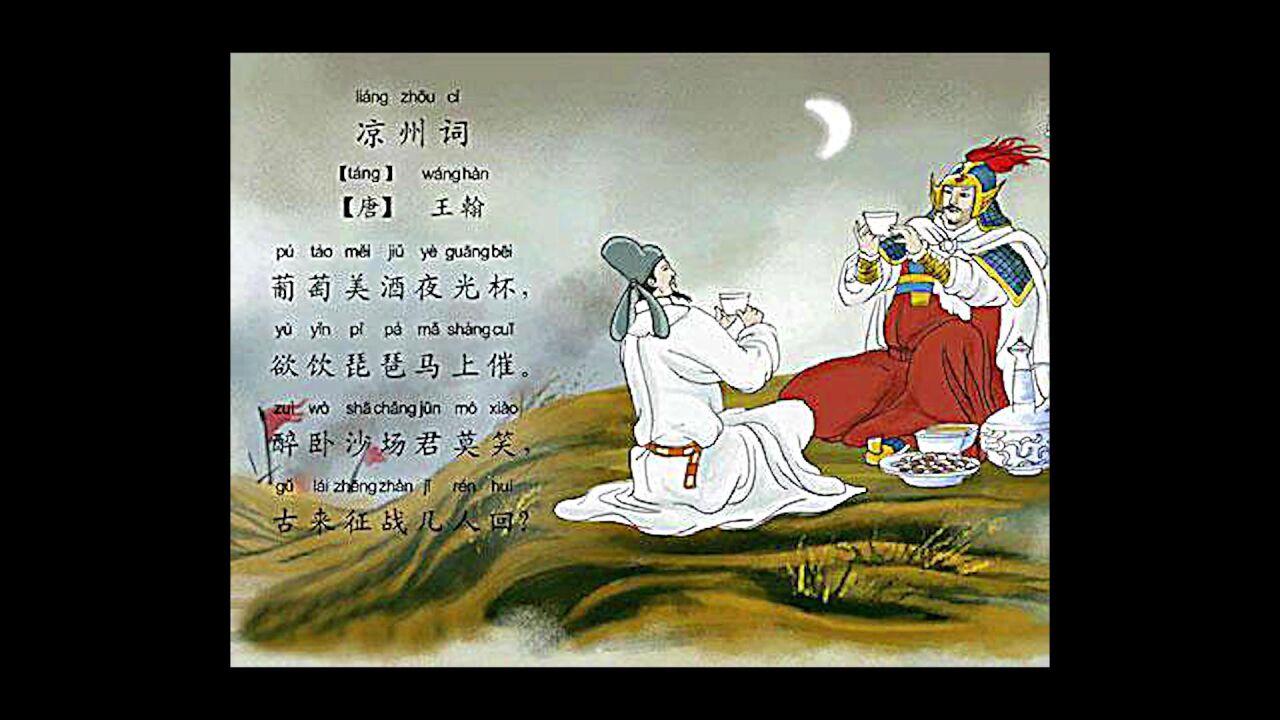 liáng zhōu cí
凉州词
【táng】 wáng hàn
【唐】 王翰
pú táo měi jiǔ yè guāng bēi
葡萄美酒夜光杯，
yù yǐn pí pá mǎ shàng cuī
欲饮琵琶马上催。
zuì wò shā chǎng jūn mò xiào
醉卧沙场君莫笑，
gǔ lái zhēng zhàn jǐ rén huí
古来征战几人回？